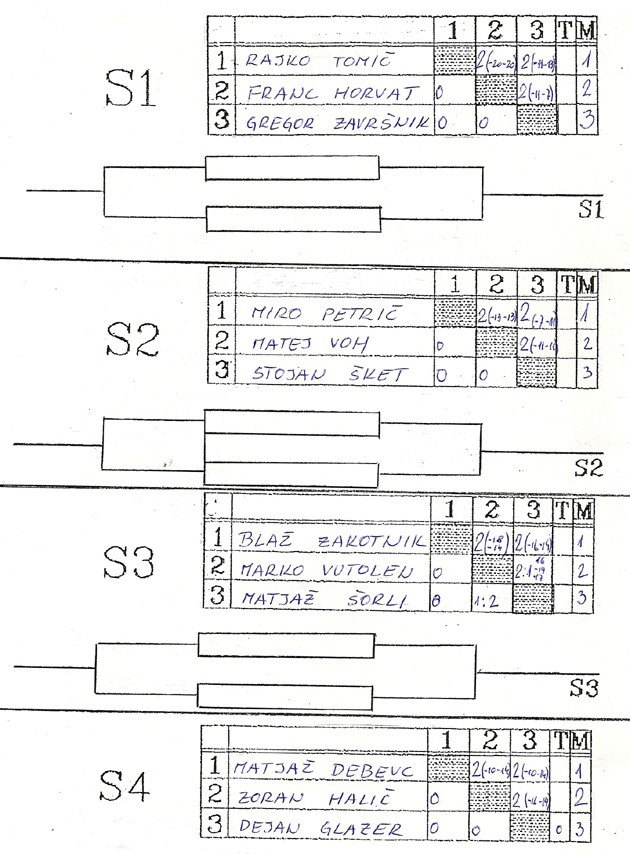 1 2 3 T M
S1
1 RAJKO TOMIČ 2(-20-20) 2(-11-13) 1
2 FRANC HORVAT 0 2(-11-7) 2
3 GREGOR ZAVRŠNIK 0 0 3
S1
1 2 3 T M
S2
1 MIRO PETRIČ 2(-13-13) 1
2 MATEJ VOH 0 2
3 STOJAN ŠKET 0 0 3
S2
1 2 3 T M
S3
1 BLAŽ ZAKOTNIK 2 2(-16-14) 1
2 MARKO VUTOLEN 0 2:1 2
3 MATJAŽ ŠORLI 0 1:2 3
S3
1 2 3 T M
S4
1 MATJAŽ DEBEVC 2(-10-14) 2(-10-14) 1
2 ZORAN HALIČ 0 2(-16-19) 2
3 DEJAN GLAZER 0 0 0 3